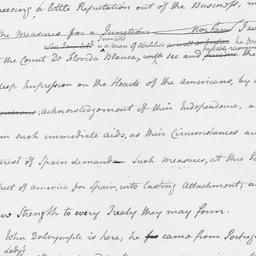 queezing a little Reputation out of the Business, m
the Measures for a Junction
is a man of Abilities
the Count De Florida Blanca, will see and the
deep Impression on the Hearts of the Americans, by a
acknowledgement of their Independence, a
m such immediate Aids, as their Circumstances an
erest of Spain demand - Such Measures, at this Pe
pect of America for Spain, into lasting Attachment, a
ive Strength to every Treaty they may form.
John Dalrymple is here, he came from Portug
Lady's